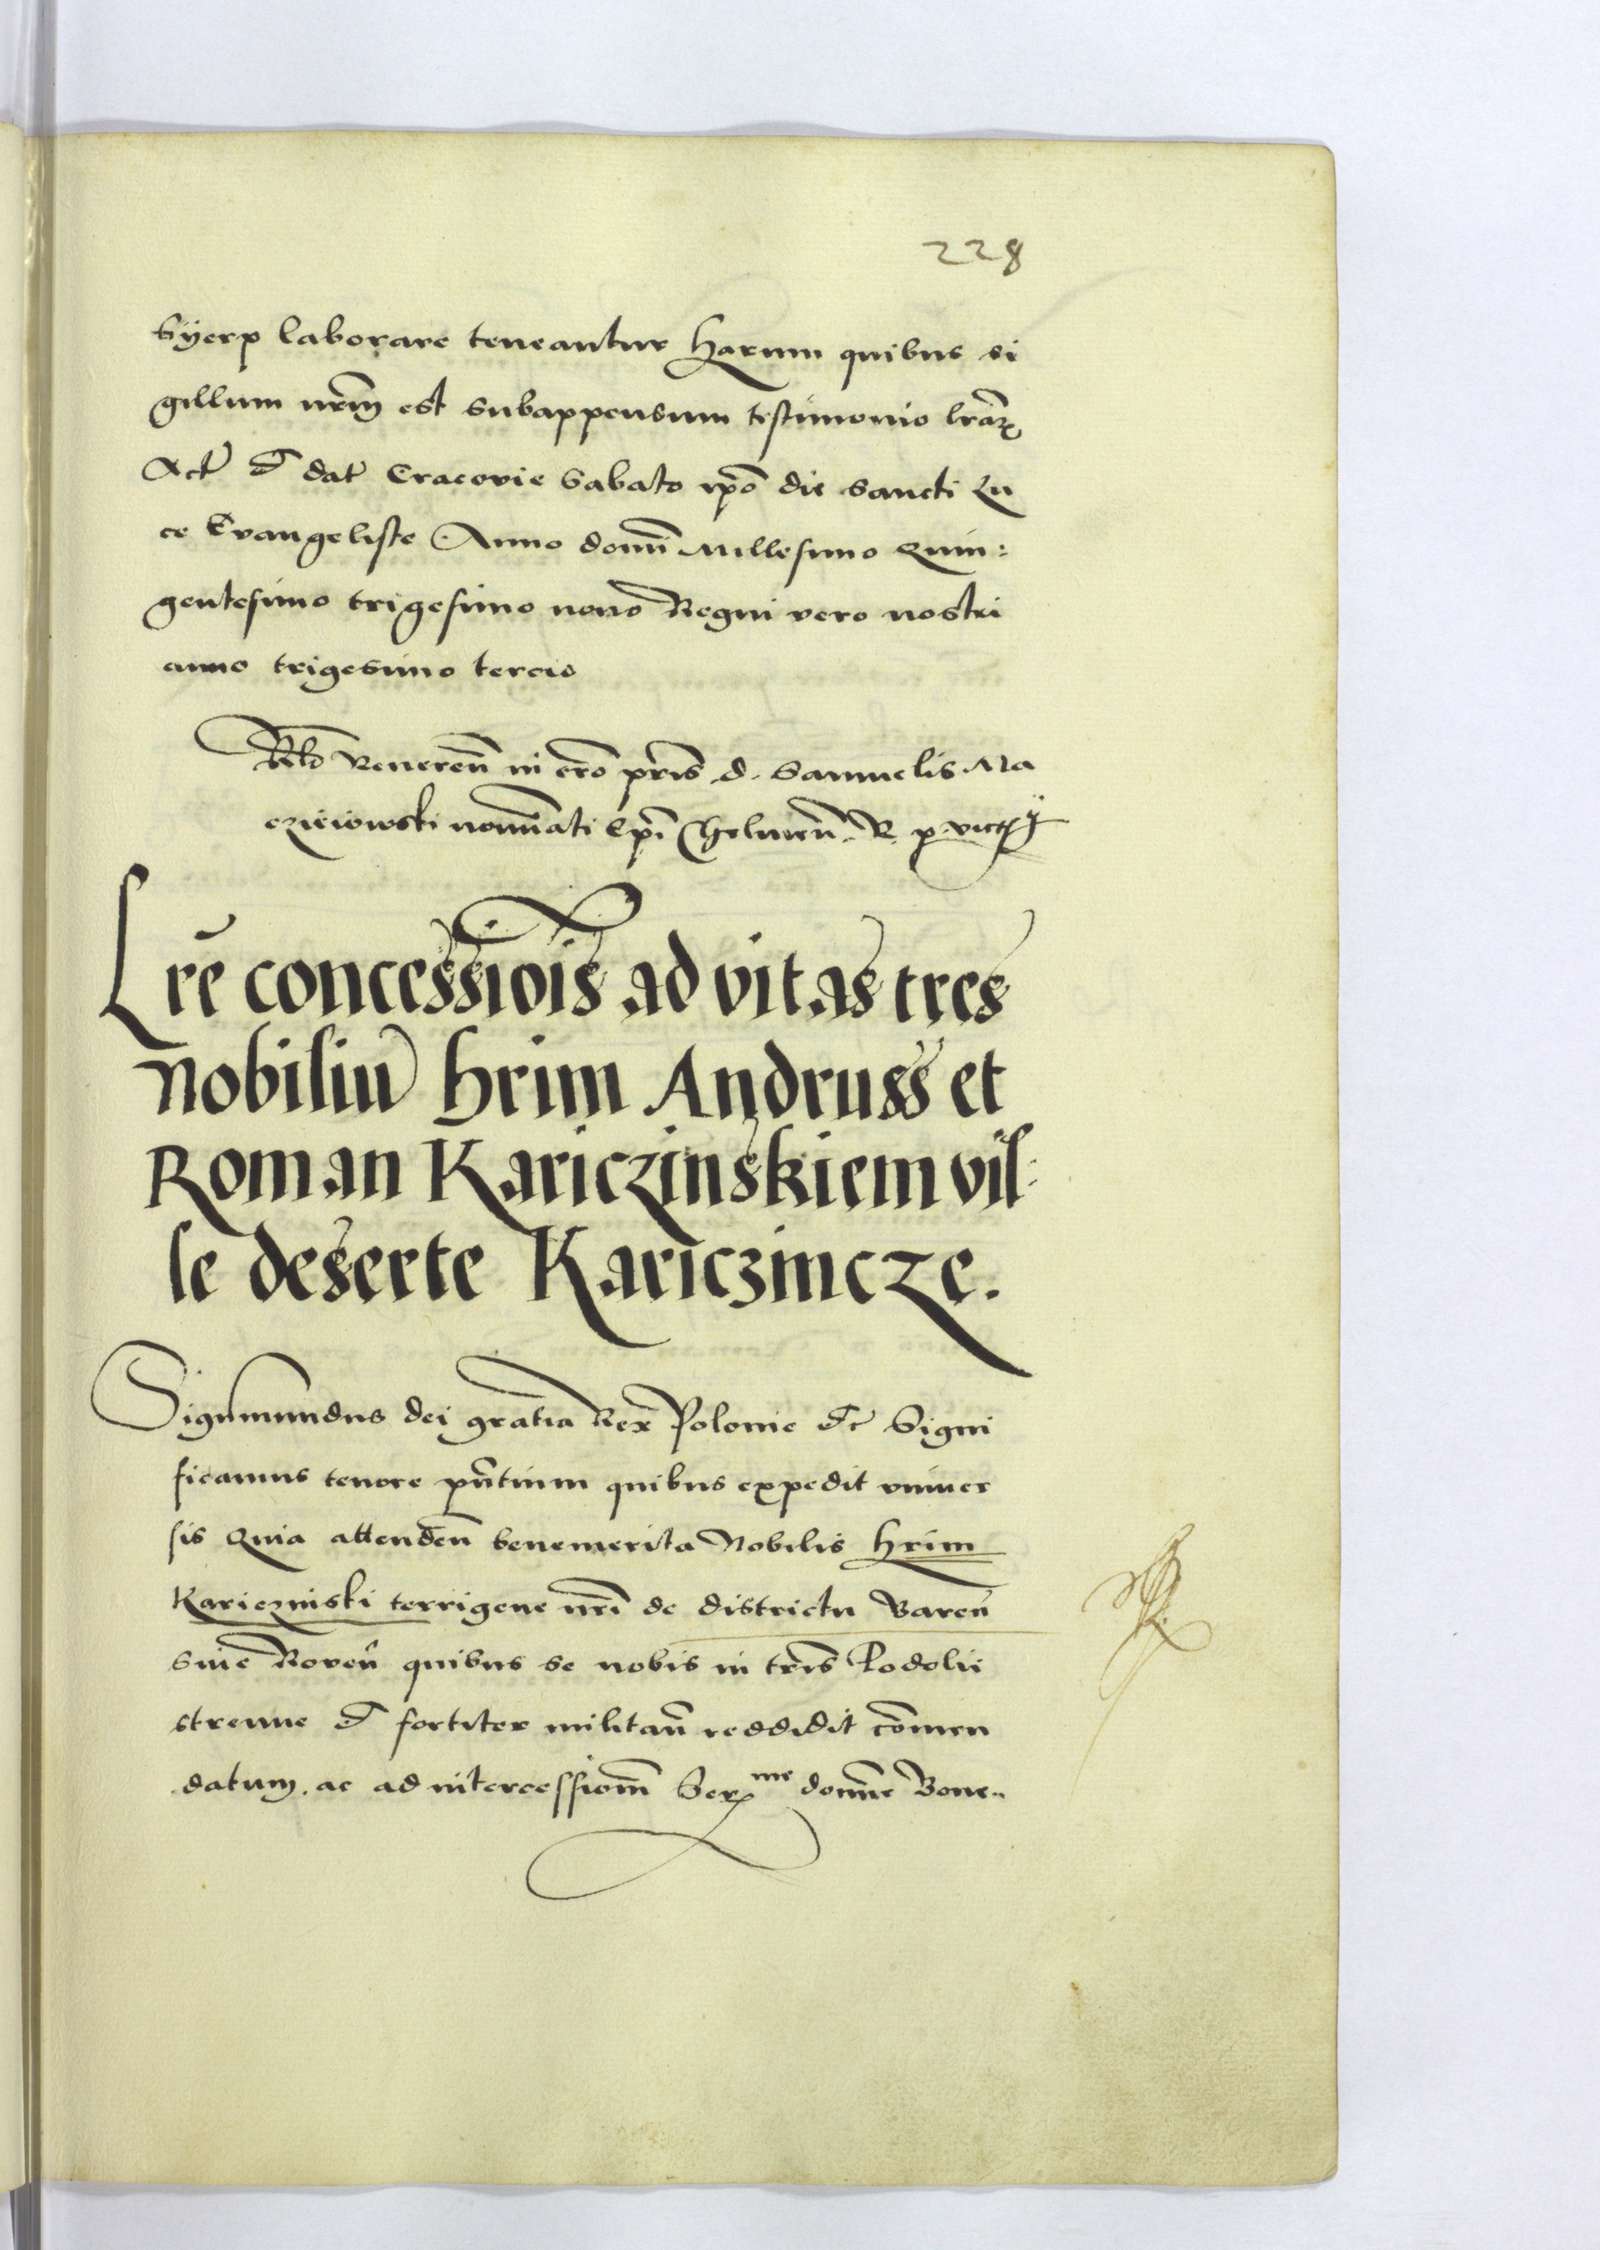 228
Syerp laborare teneantur Harum quibus si
gillum nr̃m est subappensum testimonio lr̃arꝫ
Act̃ et dat̃ Cracovie Sabato ip̃o die sancti Lu
ce Evangeliste Anno domĩ Millesimo Quin:
gentesimo trigesimo nono Regni vero nostri
anno trigesimo tercio
Rel̃o Reveren̄ in cr̃o pr̃is d. Samuelis Ma
czieiowski nomĩati Ep̃i Chelmen̄ R. p.
Lrẽ concessiõis ad vitas tres
nobiliũ hrim Andruss et
Roman Kariczinskiem vil:
le deserte Kariczincze.
Sigismundus dei gratia Rex Polonie etc̃ Signi
ficamus tenore pñtium quibus expedit univer
sis Quia attenden̄ benemerita Nobilis hrim
Kariczinski terrigene nr̃i de districtu Baren̄
sive Roven̄ quibus se nobis in tr̃is Podolii
strenue et fortiter militan̄ reddidit cõmen
datum. ac ad intercessionẽ Ser me domĩe Bone..